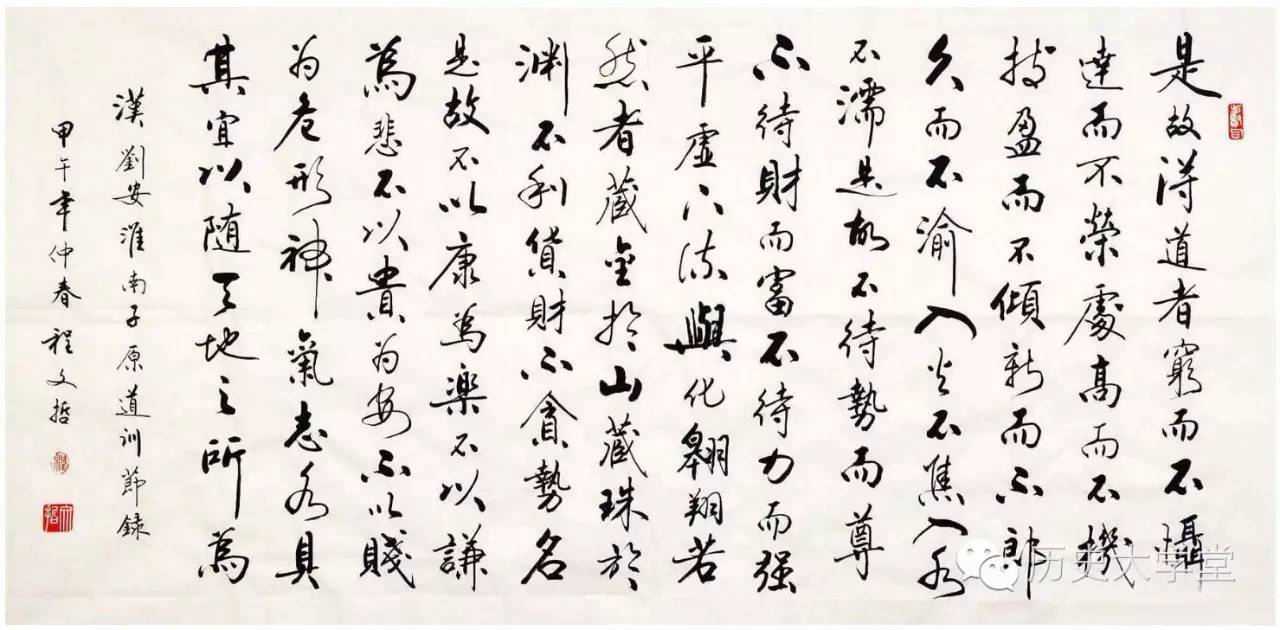 是故得道者窮而不懾
達而不榮處高而不機
持盈而不傾新而不郎
久而不渝入火不焦入水
不濡是故不待勢而尊
不待財而富不待力而强
平虛下流與化翱翔若
然者藏金於山藏珠於
淵不利貨財不貪勢名
是故不以康為樂不以謙
為悲不以貴為安不以賤
為危形神氣志各具
其宜以隨天地之所為
漢劉安淮南子原道訓節錄
甲午年仲春程文哲
历史大学堂